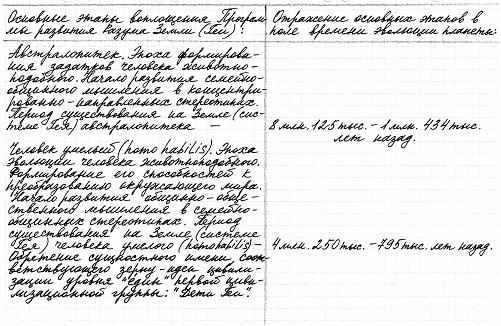 Основные этапы воплощения Програм-
мы развития Разума Земли (Геи):
Отражение основных этапов в
поле времени эволюции планеты:
Австралопитек. Эпоха формирова-
ния задатков человека животно-
подобного. Начало развития семейно-
общинного мышления в концентри-
рованно-направленных стереотипах.
Период существования на Земле (сис-
теме Гея) австралопитека —
8 млн. 125 тыс. – 1 млн. 434 тыс.
лет назад.
Человек умелый (homo habilis). Эпоха
эволюции человека животноподобного.
Формирование его способностей к
преобразованию окружающего мира.
Начало развития общинно-обще-
ственного мышления в семейно-
общинных стереотипах. Период
существования на Земле (системе
Гея) человека умелого (homo habilis) –
4 млн. 250 тыс. – 795 тыс. лет назад.
Обретение сущностного имени, соот-
ветствующего зерну-идеи цивили-
зации уровня "един" первой циви-
лизационной группы: "Дети Ти".